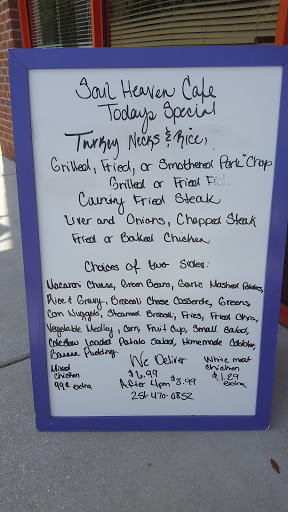 Soul Heaven Cafe
Todays Special
Turkey Necks & Rice,
Grilled, Fried, or Smothered Pork Chop
Grilled or Fried
Country Fried Steak
Liver and Onions, Chopped Steak
Fried or Baked Chicken
Choices of two Sides:
Macaroni Cheese, Green Beans, Garlic Mashed Potatoes,
Rice & Gravy, Broccoli Cheese Casserole, Greens,
Corn Nuggets, Steamed Broccoli, Fries, Fried Okra,
Vegetable Medley, Corn, Fruit Cup, Small Salad,
Coleslaw Loaded Potato Salad, Homemade Cobbler,
Banana Pudding.
Mixed Chicken 99¢ extra
We Deliver
$6.99
After 4pm $8.99
251-470-0852
White meat Chicken $1.29 extra